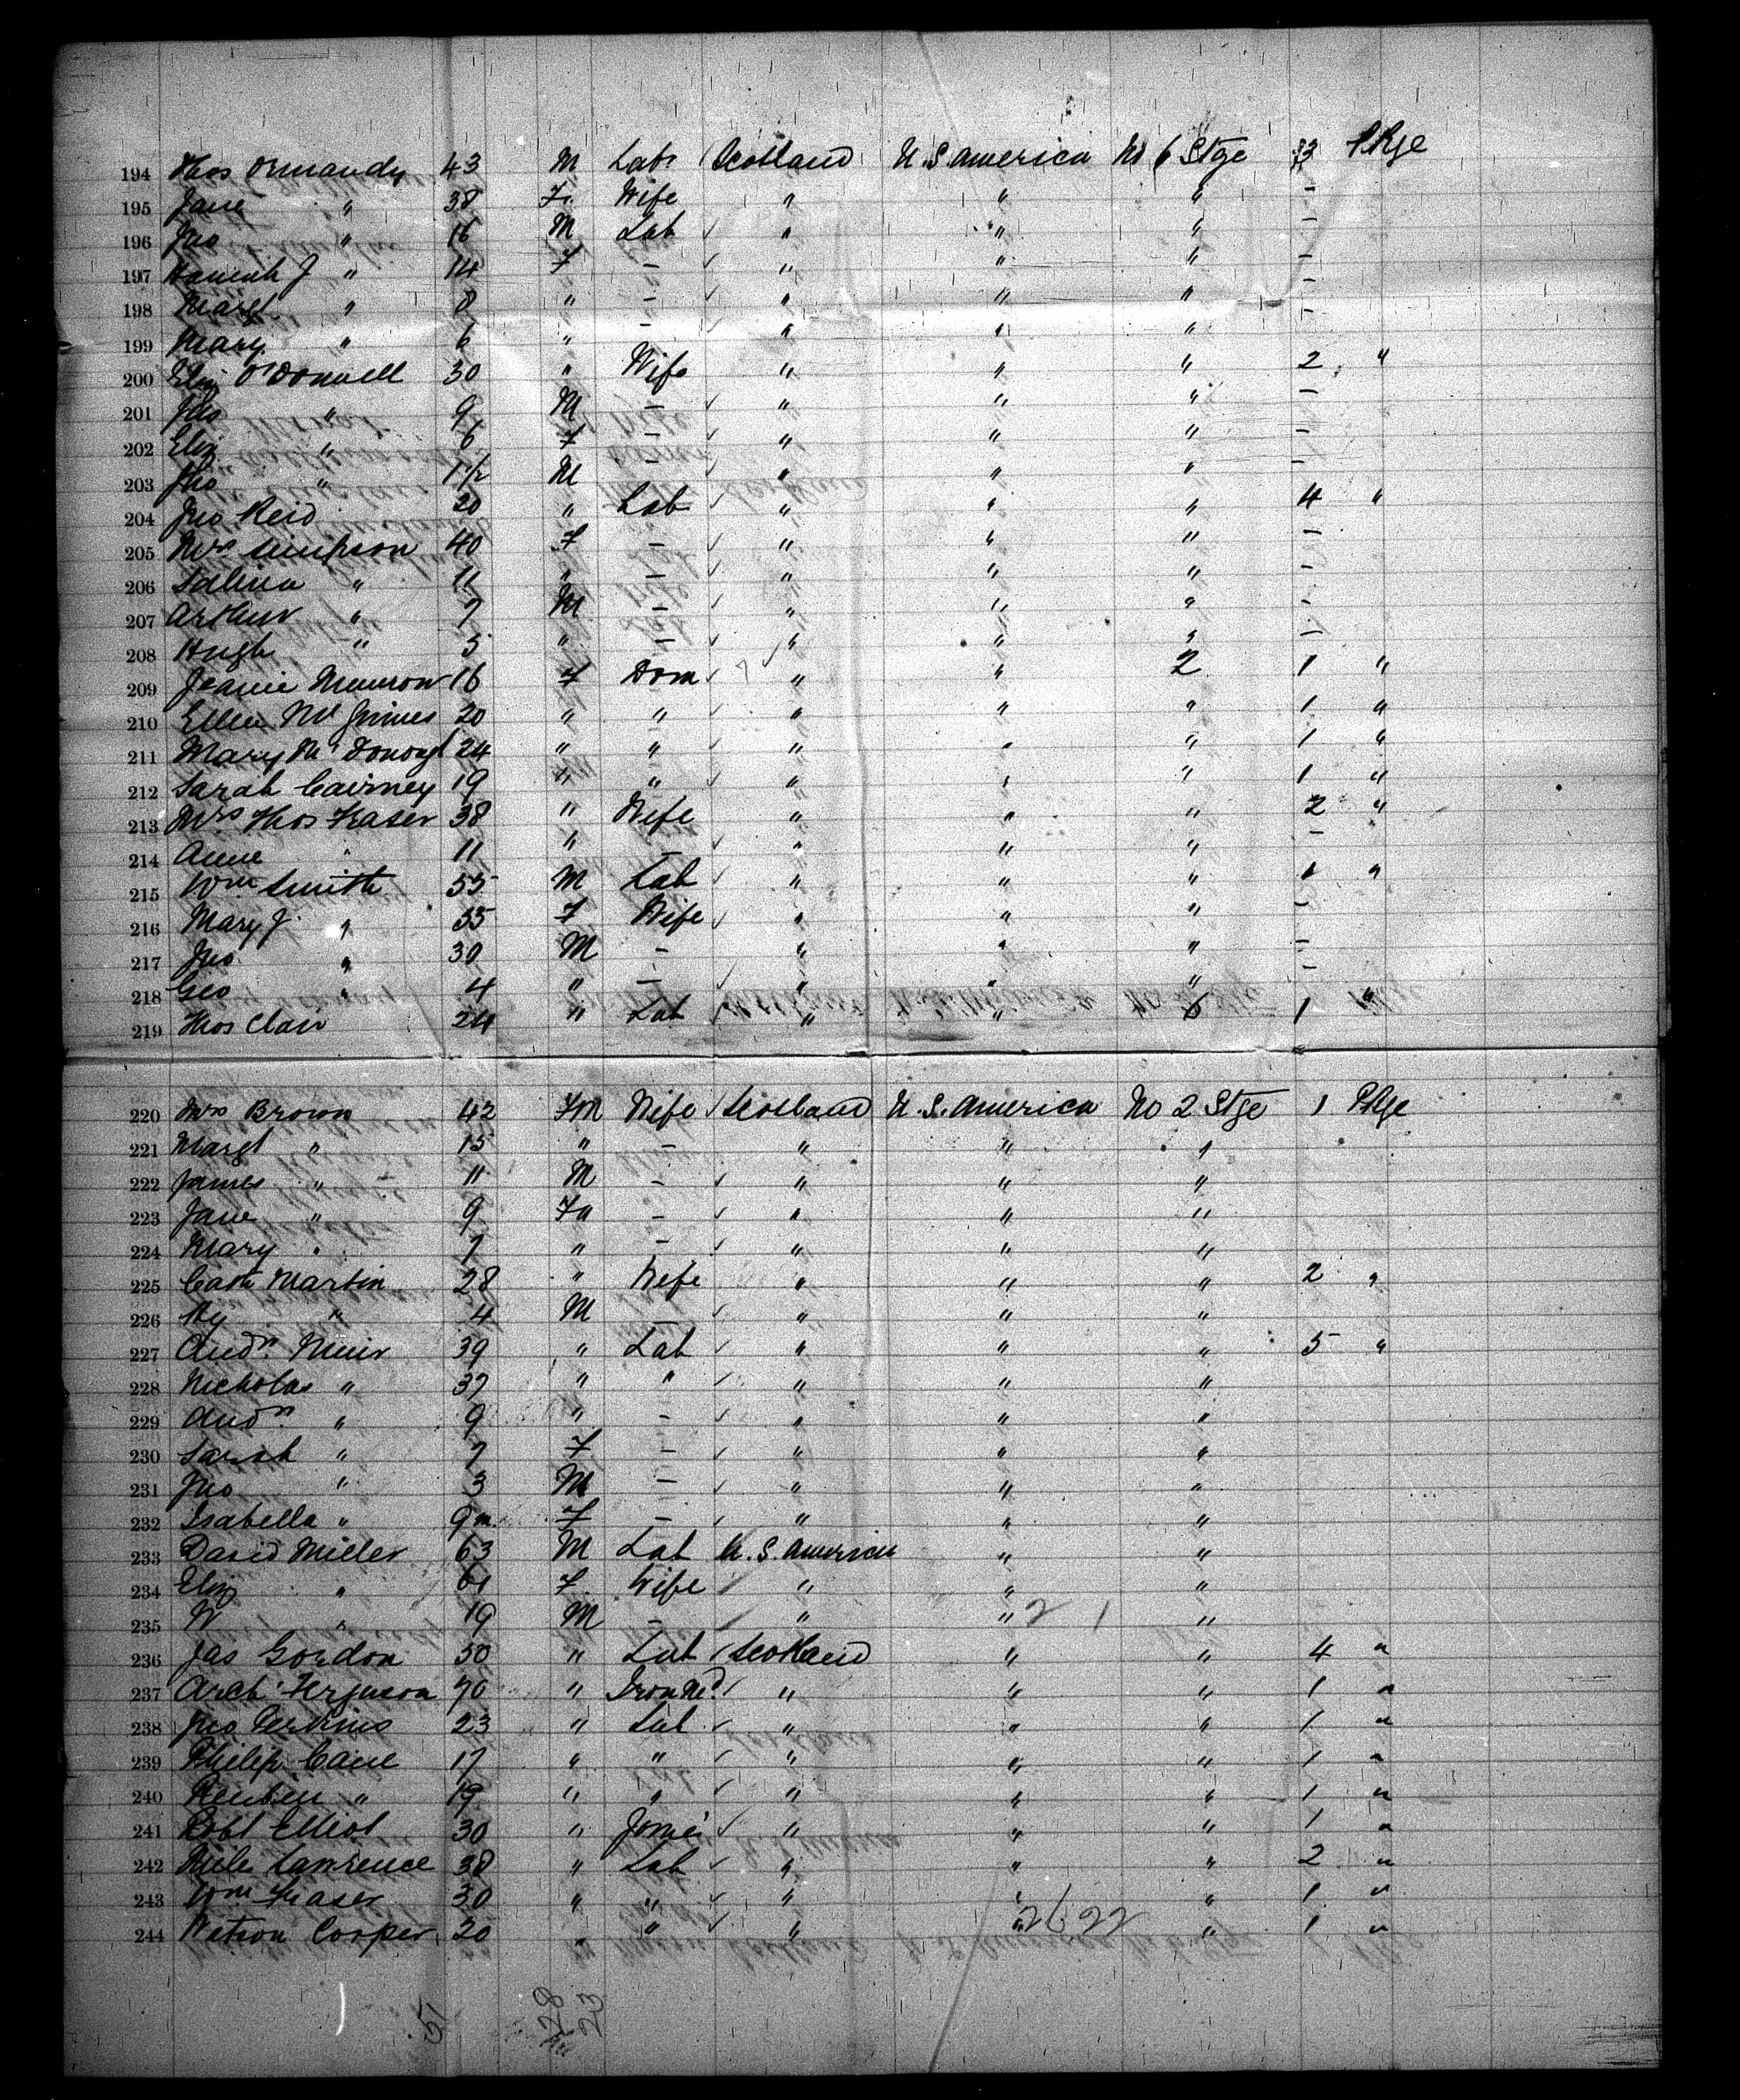 194 Thos Ormandy 43 M Labr Scotland U.S. America No 6 Stge 3 Pkge
195 Jane " 38 F. Wife " " " -
196 Jno " 16 M Lab " " " -
197 Hannah J " 14 F - " " " -
198 Margt " 8 " - " " " -
199 Mary " 6 " - " " " -
200 Eliz O'Donnell 30 " Wife " " " 2 "
201 Jas " 9 M - " " " -
202 Eliz " 6 F - " " " -
203 Jno " 1 1/2 M - " " " -
204 Jno Reid 20 " Lab " " " 4 "
205 Mrs Simpson 40 F - " " " -
206 Salina " 11 " - " " " -
207 Arthur " 7 M - " " " -
208 Hugh " 5 " - " " " -
209 Jeanie Munron 16 F Dom " " 2 1 "
210 Ellen McGinnes 20 " " " " " 1 "
211 Mary McDonogh 24 " " " " " 1 "
212 Sarah Cairney 19 " " " " " 1 "
213 Mrs Thos Fraser 38 " Wife " " " 2 "
214 Anne " 11 " - " " " -
215 Wm Smith 55 M Lab " " " 1 "
216 Mary J. " 55 F Wife " " " -
217 Jno " 30 M - " " " -
218 Geo " 4 " - " " " -
219 Thos Clair 24 " Lab " " 6 1 "
220 Mrs Brown 42 Fm Wife Scotland U.S. America No 2 Stge 1 Pkge
221 Margt " 15 " - " " "
222 James " 11 M - " " "
223 Jane " 9 Fm - " " "
224 Mary " 7 " - " " "
225 Cath Martin 28 " Wife " " " 2 "
226 Hy " 4 M " " "
227 Andw Muir 39 " Lab " " " 5 "
228 Nicholas " 37 " " " " "
229 Andw " 9 " - " " "
230 Sarah " 7 F - " " "
231 Jno " 3 M - " " "
232 Isabella " 9m. F - " " "
233 David Miller 63 M Lab U.S. America " "
234 Eliz " 61 F. Wife " " "
235 W " 19 M - " " 2 1 "
236 Jas Gordon 50 " Lab Scotland " " 4 "
237 Arch Ferguson 70 " " " " 1 "
238 Jno Perkins 23 " Lab " " " 1 "
239 Philip Cane 17 " " " " " 1 "
240 Reuben " 19 " " " " " 1 "
241 Robt Elliot 30 " " " " 1 "
242 Lawrence 38 " Lab " " " 2 "
243 Wm Fraser 30 " " " " " 1 "
244 Watson Cooper 20 " " " " " 1 "
51 28
23